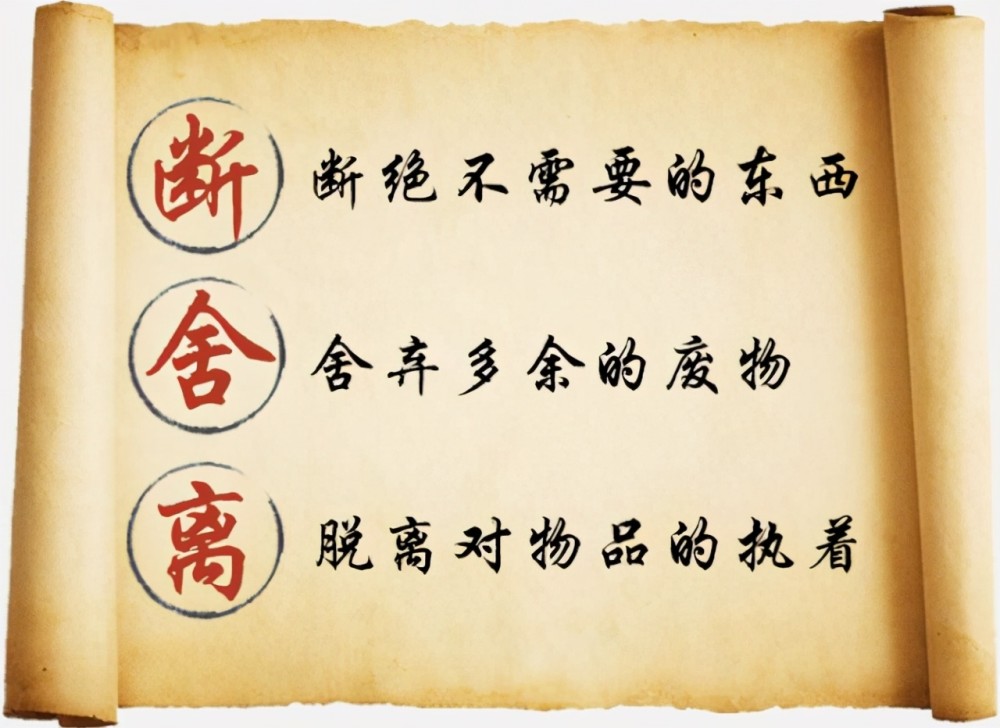 断 断绝不需要的东西
舍 舍弃多余的废物
离 脱离对物品的执着